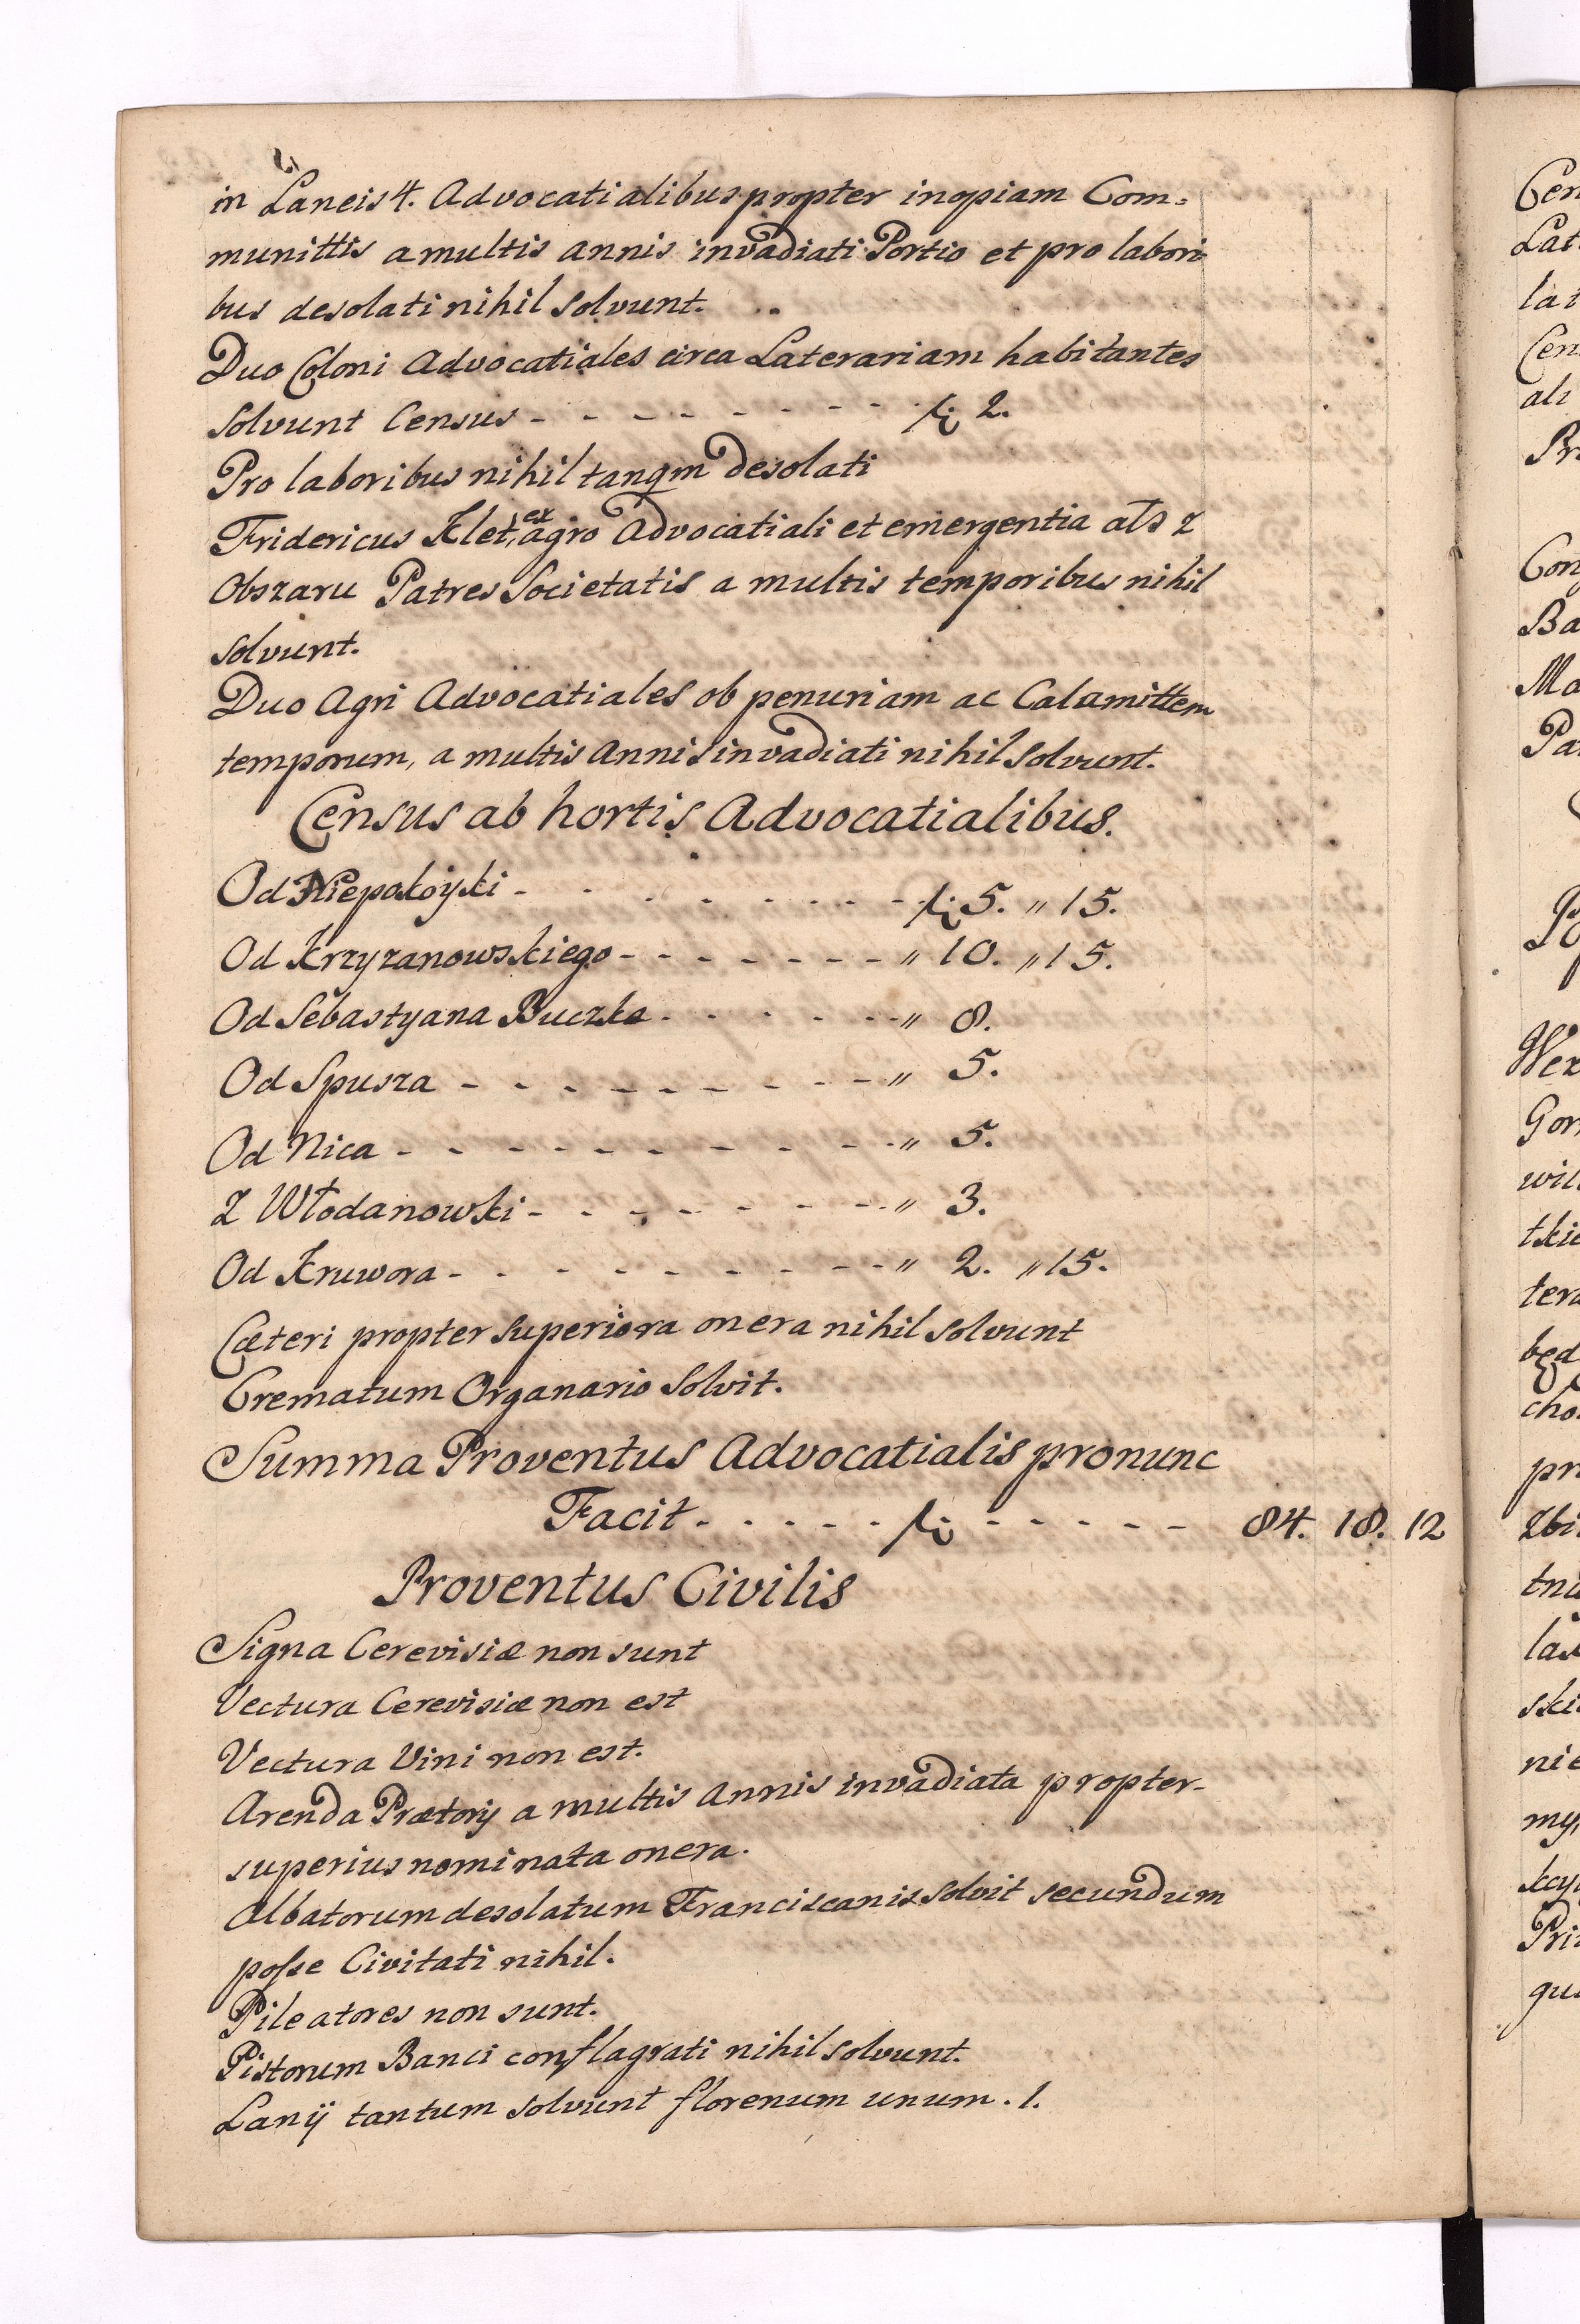 in Laneis 4. Advocatialibus propter inopiam Com-
munittis a multis annis invadiati Portio et pro labori
bus desolati nihil solvunt.
Duo Coloni Advocatiales circa Laterariam habitantes
solvunt Census - - - - - - - - fl: 2.
Pro laboribus nihil tanqm desolati
Fridericus Klet, ex agro Advocatiali et emergentia als z
Obszaru Patres Societatis a multis temporibus nihil
solvunt.
Duo Agri Advocatiales ob penuriam ac Calamittem
temporum, a multis annis invadiati nihil solvunt.
Census ab hortis Advocatialibus.
Od Niepokoyski - - - - - - - fl: 5. " 15.
Od Krzyzanowskiego - - - - - - - " 10. " 15.
Od Sebastyana Buczka - - - - - - " 8.
Od Spusza - - - - - - - - - " 5.
Od Nica - - - - - - - - - - " 5.
Z Włodanowski - - - - - - - - " 3.
Od Kruwora - - - - - - - - - " 2. " 15.
Cæteri propter superiora onera nihil solvunt
Crematum Organario solvit.
Summa Proventus Advocatialis pro nunc
Facit - - - - - fl: - - - - - - 84. 18. 12
Proventus Civilis
Signa Cerevisiæ non sunt
Vectura Cerevisiæ non est
Vectura Vini non est.
Arenda Prætorij a multis annis invadiata propter-
superius nominata onera.
Albatorum desolatum Franciscanis solvit secundum
posse Civitati nihil.
Pileatores non sunt.
Pistorum Banci conflagrati nihil solvunt.
Lanij tantum solvunt florenum unum . 1.